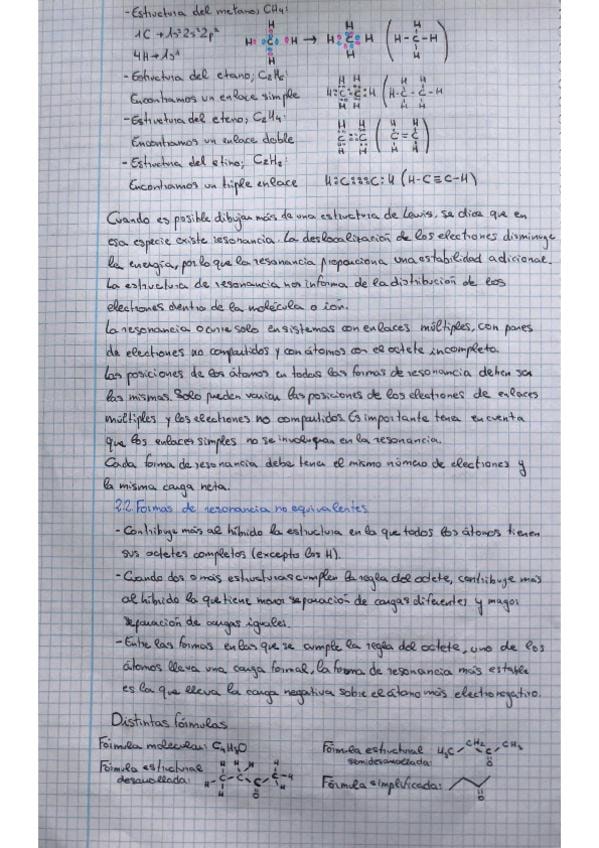 - Estructura del metano; CH4:
1C → 1s² 2s² 2p²
4H → 1s¹
- Estructura del etano; C2H6:
Encontramos un enlace simple
- Estructura del eteno; C2H4:
Encontramos un enlace doble
- Estructura del etino; C2H2:
Encontramos un triple enlace H:C:::C:H (H-C≡C-H)
Cuando es posible dibujar más de una estructura de Lewis, se dice que en
esa especie existe resonancia. La deslocalización de los electrones disminuye
la energía, por lo que la resonancia proporciona una estabilidad adicional.
La estructura de resonancia nos informa de la distribución de los
electrones dentro de la molécula o ión.
La resonancia ocurre solo en sistemas con enlaces múltiples, con pares
de electrones no compartidos y con átomos con el octete incompleto.
Las posiciones de los átomos en todas las formas de resonancia deben ser
las mismas. Solo pueden variar las posiciones de los electrones de enlaces
múltiples y los electrones no compartidos. Es importante tener en cuenta
que los enlaces simples no se involucran en la resonancia.
Cada forma de resonancia debe tener el mismo número de electrones y
la misma carga neta.
2.2. Formas de resonancia no equivalentes
- Contribuye más al híbrido la estructura en la que todos los átomos tienen
sus octetes completos (excepto los H).
- Cuando dos o más estructuras cumplen la regla del octete, contribuye más
al híbrido la que tiene menor separación de cargas diferentes y mayor
separación de cargas iguales.
- Entre las formas en las que se cumple la regla del octete, uno de los
átomos lleva una carga formal, la forma de resonancia más estable
es la que lleva la carga negativa sobre el átomo más electronegativo.
Distintas fórmulas
Fórmula molecular: C4H8O
Fórmula estructural
semidesarrollada: H3C CH2 C CH3 O
Fórmula estructural
desarrollada:
Fórmula simplificada: O